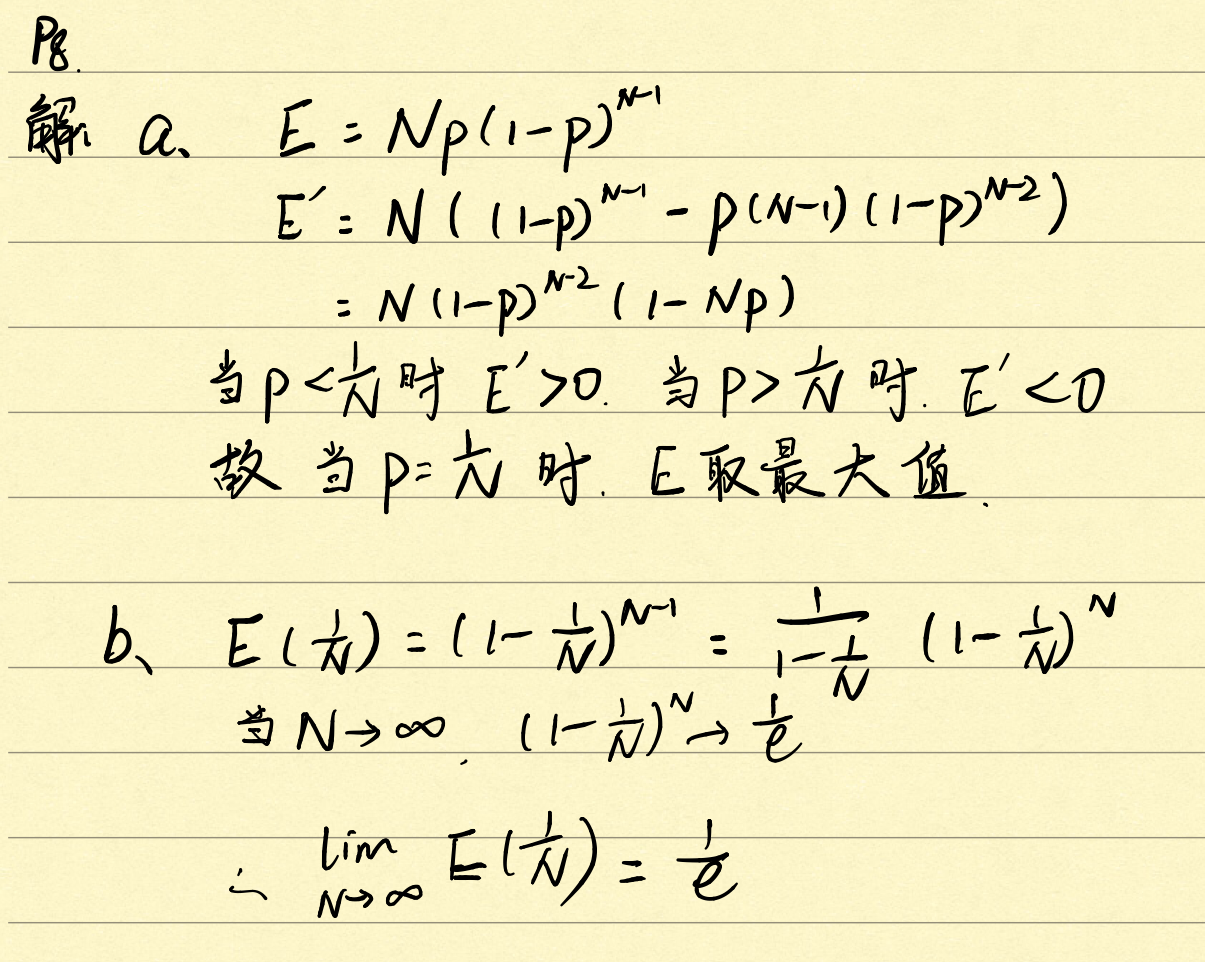 P8.
解: a、 E = Np(1-p)^{N-1}
E' = N((1-p)^{N-1} - p(N-1)(1-p)^{N-2})
= N(1-p)^{N-2}(1-Np)
当 p < \frac{1}{N} 时 E' > 0. 当 p > \frac{1}{N} 时. E' < 0
故 当 p = \frac{1}{N} 时. E 取最大值.
b、 E(\frac{1}{N}) = (1-\frac{1}{N})^{N-1} = \frac{1}{1-\frac{1}{N}} (1-\frac{1}{N})^N
当 N→∞. (1-\frac{1}{N})^N → \frac{1}{e}
∴ \lim_{N→∞} E(\frac{1}{N}) = \frac{1}{e}